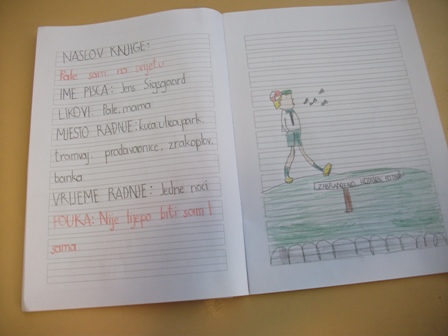 NASLOV KNJIGE:
Pale sam na svijetu
IME PISCA: Jens Sigsgaard
LIKOVI: Pale, mama
MJESTO RADNJE: kuća, ulica, park,
tramvaj, prodavaonice, zrakoplov,
banka
VRIJEME RADNJE: Jedne noći
POUKA: Nije lijepo biti sam i
sama.
ZABRANJENO